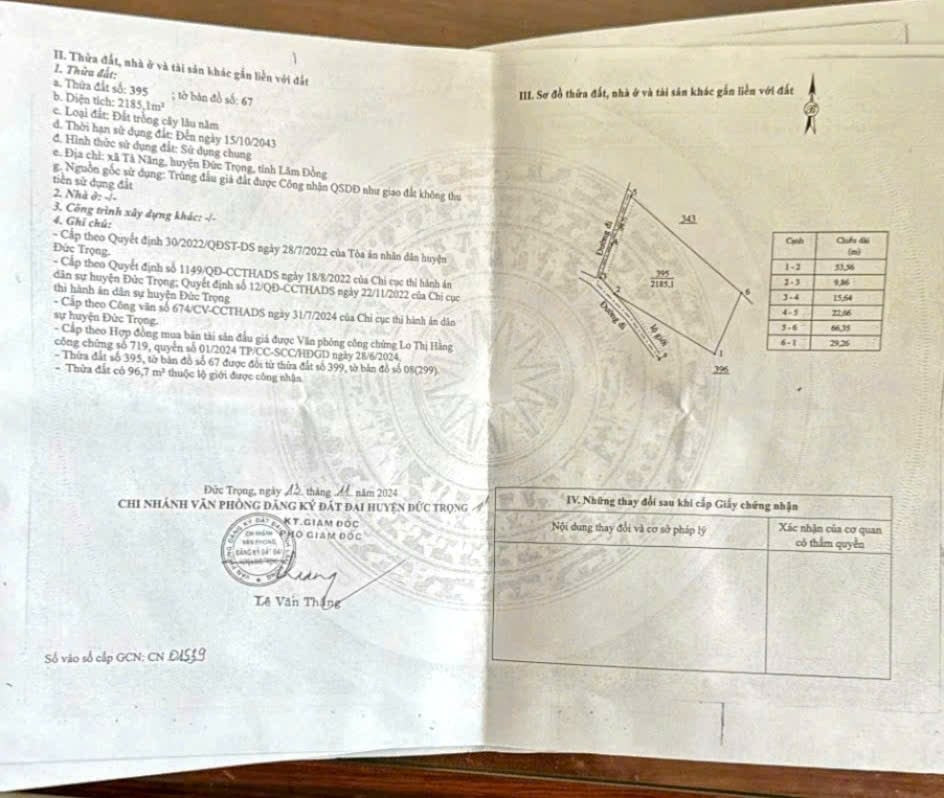 II. Thửa đất, nhà ở và tài sản khác gắn liền với đất
1. Thửa đất:
a. Thửa đất số: 395 ; tờ bản đồ số: 67
b. Diện tích: 2185,1m²
c. Loại đất: Đất trồng cây lâu năm
d. Thời hạn sử dụng đất: Đến ngày 15/10/2043
đ. Hình thức sử dụng đất: Sử dụng chung
e. Địa chỉ: xã Tà Năng, huyện Đức Trọng, tỉnh Lâm Đồng
g. Nguồn gốc sử dụng: Trúng đấu giá đất được Công nhận QSDĐ như giao đất không thu
tiền sử dụng đất
2. Nhà ở: -/-
3. Công trình xây dựng khác: -/-
4. Ghi chú:
- Cấp theo Quyết định 30/2022/QĐST-DS ngày 28/7/2022 của Tòa án nhân dân huyện
Đức Trọng.
- Cấp theo Quyết định số 1149/QĐ-CCTHADS ngày 18/8/2022 của Chi cục thi hành án
dân sự huyện Đức Trọng; Quyết định số 12/QĐ-CCTHADS ngày 22/11/2022 của Chi cục
thi hành án dân sự huyện Đức Trọng
- Cấp theo Công văn số 674/CV-CCTHADS ngày 31/7/2024 của Chi cục thi hành án dân
sự huyện Đức Trọng.
- Cấp theo Hợp đồng mua bán tài sản đấu giá được Văn phòng công chứng Lo Thị Hằng
công chứng số 719, quyển số 01/2024 TP/CC-SCC/HĐGD ngày 28/6/2024.
- Thửa đất số 395, tờ bản đồ số 67 được đổi từ thửa đất số 399, tờ bản đồ số 08(299).
- Thửa đất có 96,7 m² thuộc lộ giới được công nhận.
Đức Trọng, ngày 12 tháng 11 năm 2024
CHI NHÁNH VĂN PHÒNG ĐĂNG KÝ ĐẤT ĐAI HUYỆN ĐỨC TRỌNG
KT.GIÁM ĐỐC
PHÓ GIÁM ĐỐC
CHI NHÁNH
VĂN PHÒNG
ĐĂNG KÝ ĐẤT ĐAI
Lê Văn Thắng
Số vào sổ cấp GCN: CN
III. Sơ đồ thửa đất, nhà ở và tài sản khác gắn liền với đất
5
343
Đường đi
395
2185,1
6
3
2
Đường đi
lộ giới
1
396
Cạnh Chiều dài
(m)
1-2 53,56
2-3 9,86
3-4 15,64
4-5 22,66
5-6 66,35
6-1 29,26
IV. Những thay đổi sau khi cấp Giấy chứng nhận
Nội dung thay đổi và cơ sở pháp lý Xác nhận của cơ quan
có thẩm quyền